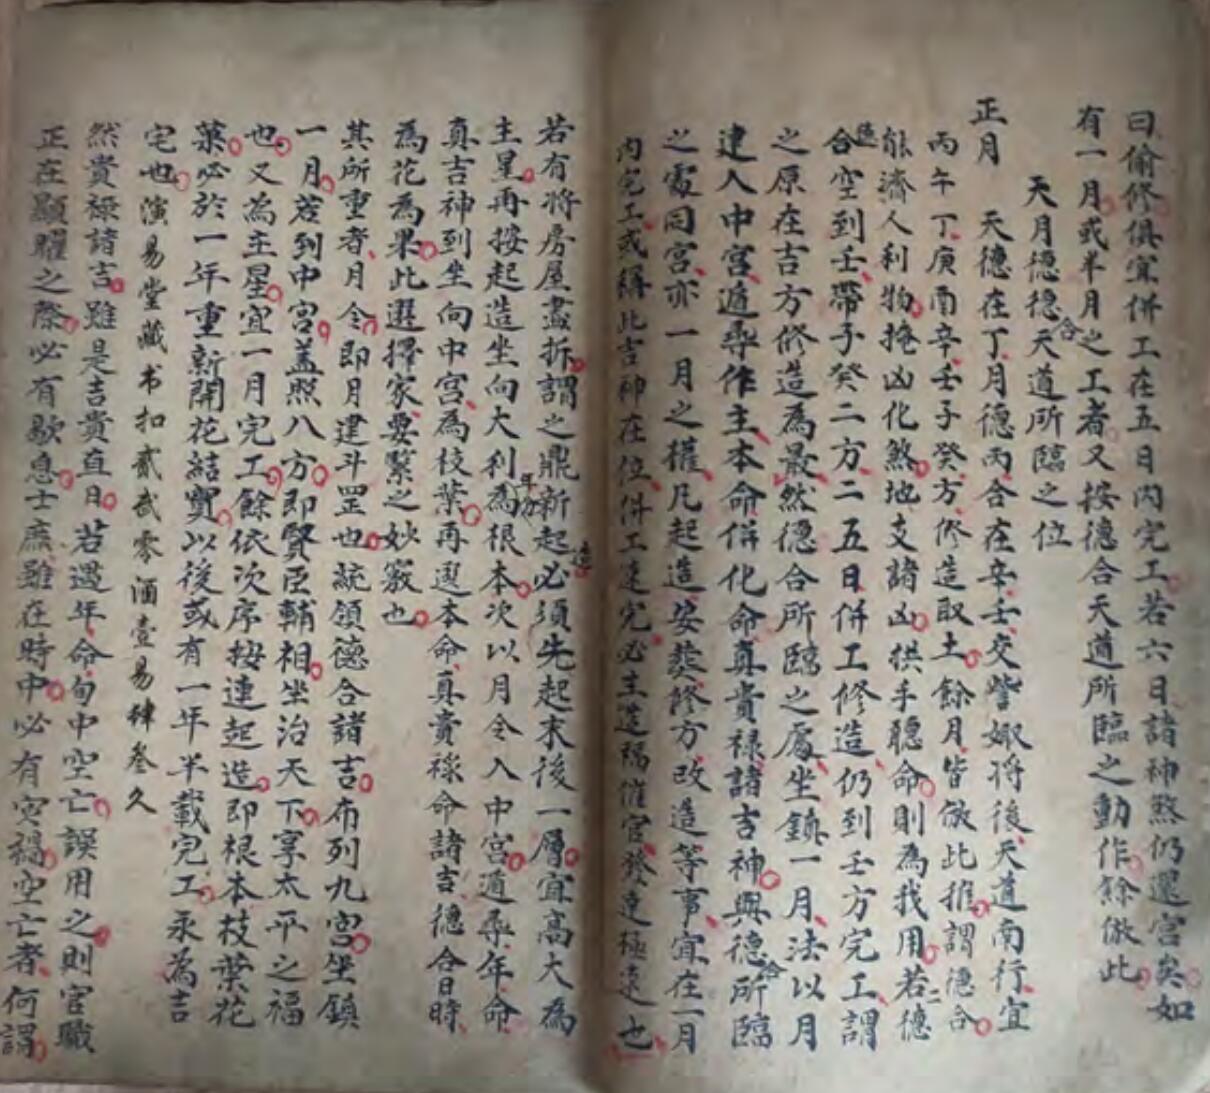 曰偷修俱宜併工在五日內完工若六日諸神煞仍還宮矣如
有一月或半月之工者又按德合天道所臨之動作餘倣此
天月德德合天道所臨之位
正月 天德在丁月德丙合在辛壬交訾娵将後天道南行宜
丙午丁庚酉辛壬子癸方修造取土餘月皆倣此推謂德合
能濟人利物掩凶化煞地支諸凶拱手聽命則為我用若二德
合造空到壬帶子癸二方二五日併工修造仍到壬方完工謂
之原在吉方修造為最然德合所臨之處坐鎮一月法以月
建入中宮遁尋作主本命併化命真貴祿諸吉神與德合所臨
之處同宮亦一月之權凡起造安葬修方改造等事宜在一月
內完工或稱此吉神在位併工速完必主造福催官發達極速也
若有將房屋盡拆謂之鼎新起造必須先起末後一層宜高大為
主星再按起造坐向大利年分為根本次以月令入中宮遁尋年命
真吉神到坐向中宮為枝葉再選本命真貴祿命諸吉德合日時
為花為果此選擇家要緊之妙竅也
其所重者月令即月建斗罡也統領德合諸吉布列九宮坐鎮
一月若到中宮蓋照八方即賢臣輔相坐治天下享太平之福
也又為主星宜一月完工餘依次序按連起造即根本枝葉花
菓必於一年重新開花結實以後或有一年半載完工永為吉
宅也演易堂藏书扣貳貳零酒壹易肆叁久
然貴祿諸吉雖是吉貴直日若遇年命旬中空亡誤用之則官職
正在顯耀之際必有歇息士庶雖在時中必有灾禍空亡者何謂